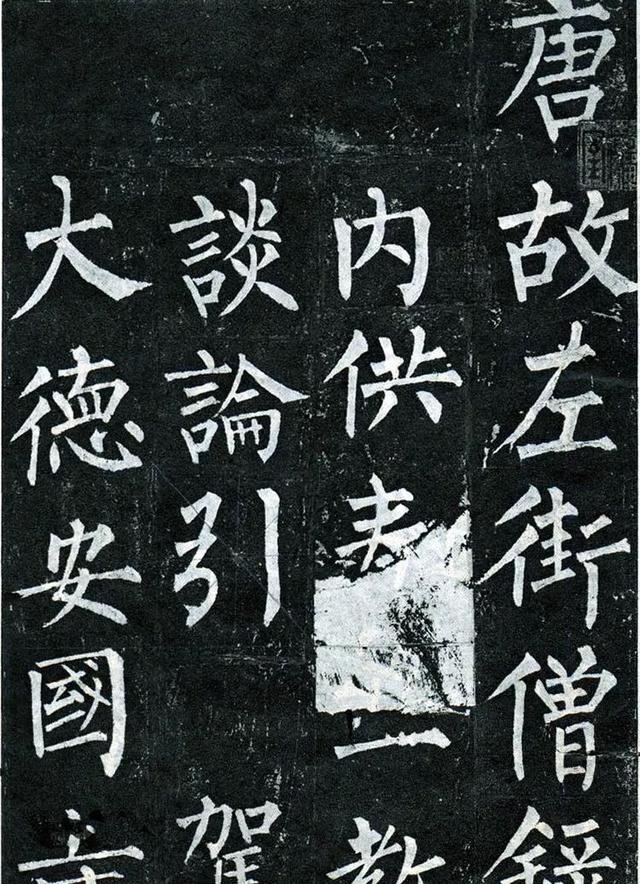 唐故左街僧
内供教
談論引駕
大德安國